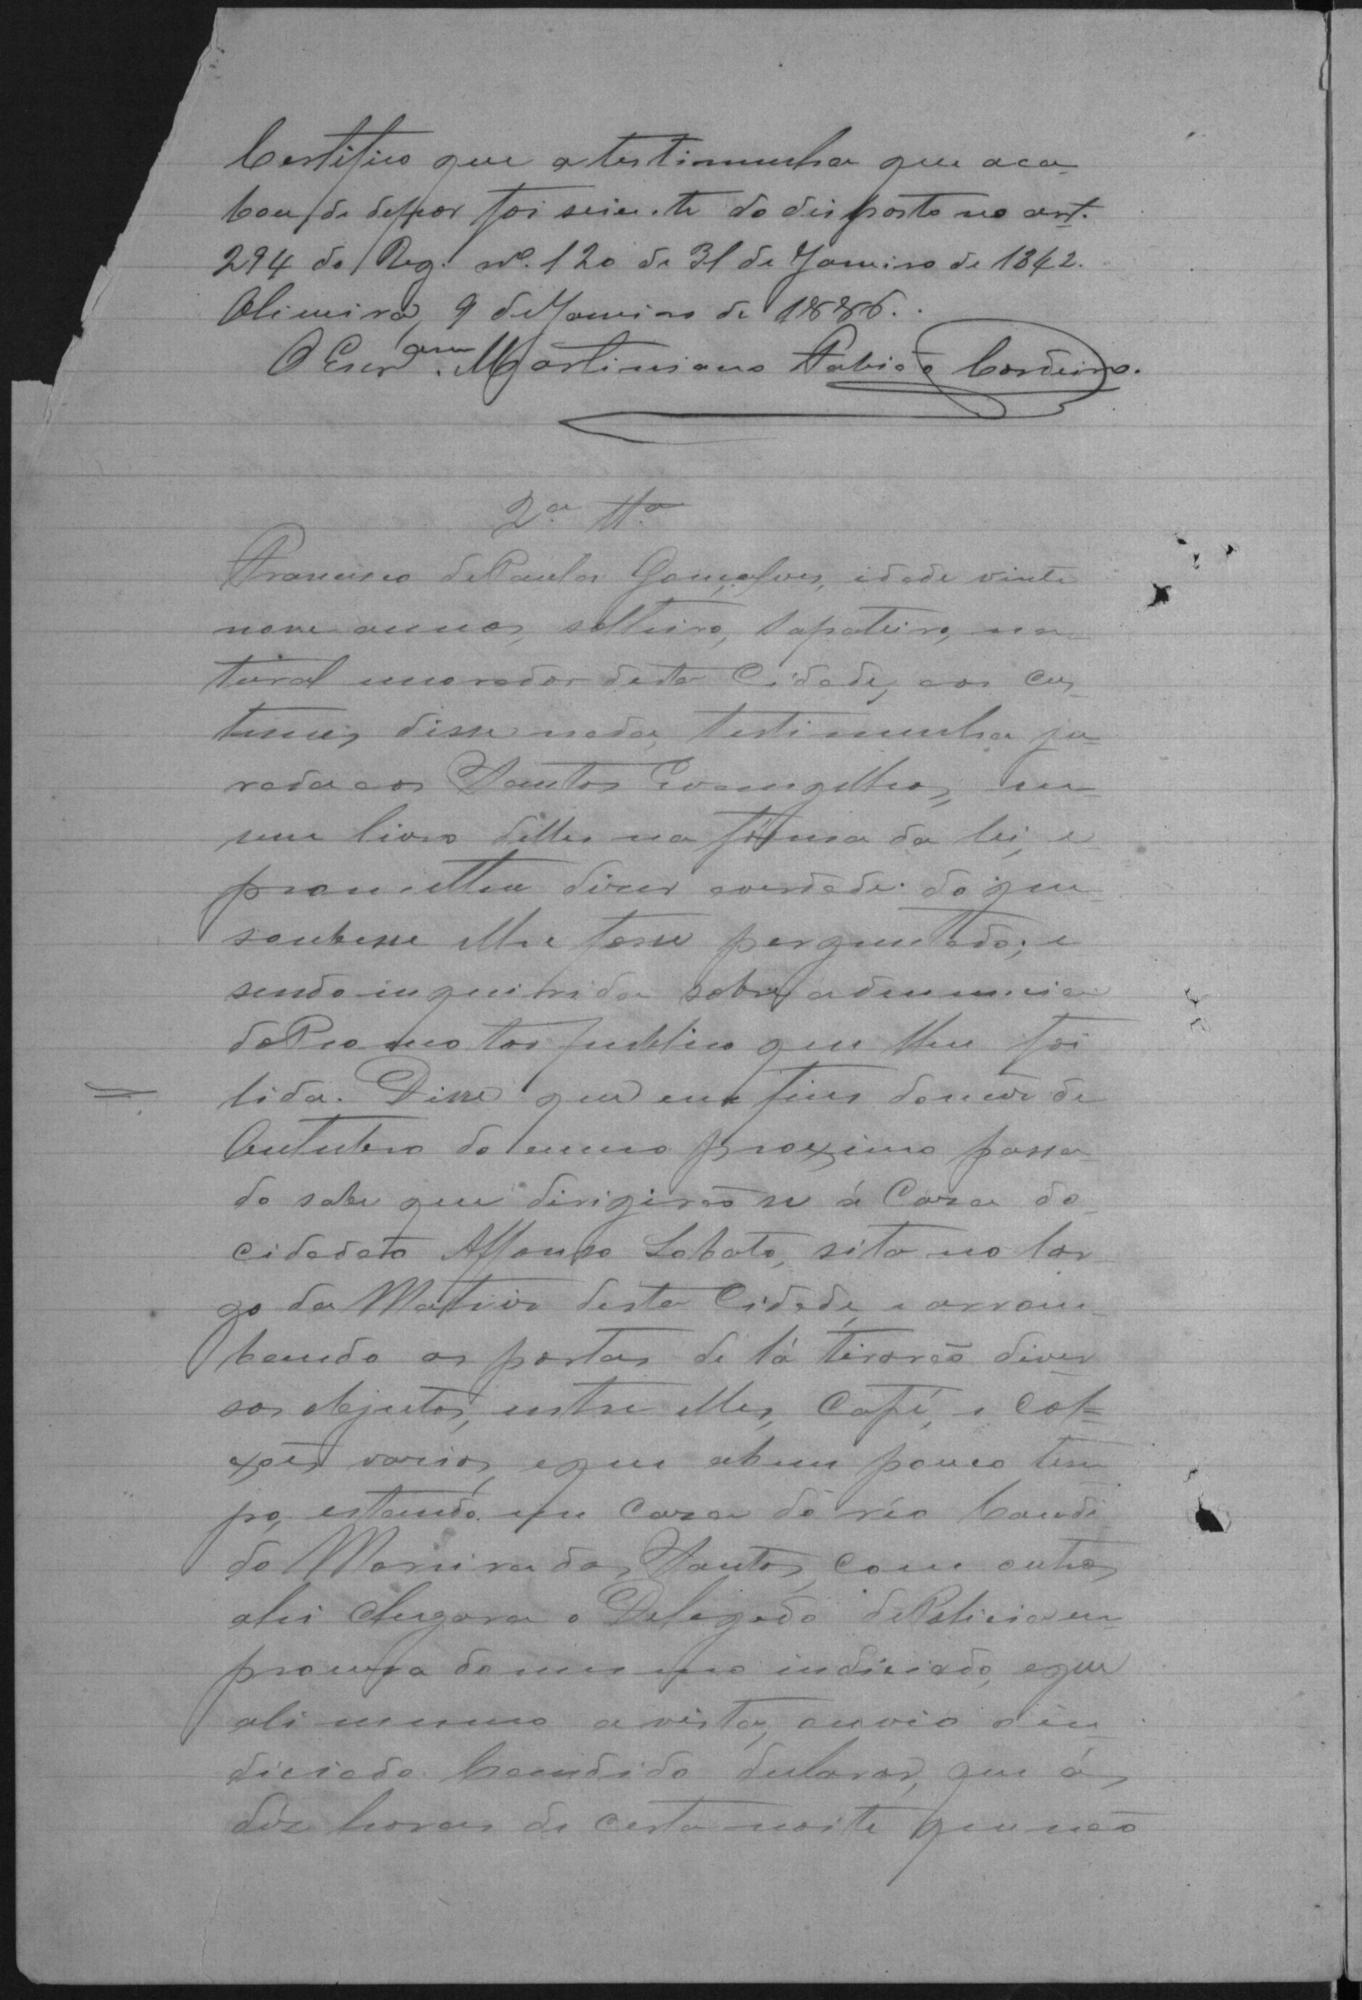 Certifico que a testimunha que aca-
bou de depor foi sciente do disposto no art.
294 do Reg. nº. 120 de 31 de Janeiro de 1842.
Oliveira, 9 de Janeiro de 1886.
O Escr.am Martiniano Fabião Cordeiro.
2.a Tt.a
Francisco de Paula Gonçalves, idade vinte
nove annos, solteiro, sapateiro, na-
tural morador desta Cidade, aos cus-
tumes disse nada, testimunha ju-
rada aos Santos Evangelhos, em
um livro delles na fórma da lei, e
prometteu dizer averdade do que
soubesse e lhe fosse perguntado; e
sendo inquirida sobre a denuncia
do Promotor publico que lhe foi
lida. Disse que em fins do mez de
Outubro do anno proximo passa-
do sabe que dirigirão se á Casa do
cidadão Affonso Lobato, sita no lar-
go da Matriz desta Cidade, e arrom-
bando as portas de lá tirarão diver
sos objectos, entre elles, Café, e Col-
xões varios, e que a hum pouco tem
po, estando em casa do réo Candi
do Moreira dos Santos, com outros
ahi chegara o Delegado de Policia em
procura do mesmo indiciado, e que
ali mesmo a vista, ouvio o in-
diciado Candido declarar, que ás
déz horas de certa noite que não